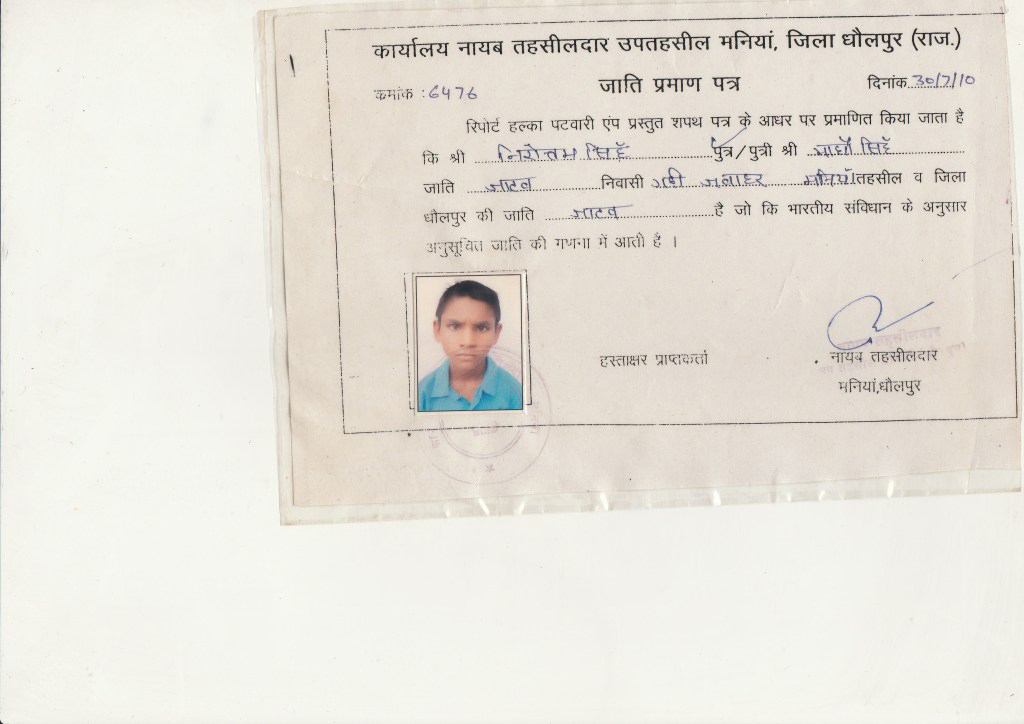 कार्यालय नायब तहसीलदार उपतहसील मनियां, जिला धौलपुर (राज.)
कमांक :6476 जाति प्रमाण पत्र दिनांक 30/7/10
रिपोर्ट हल्का पटवारी एंप प्रस्तुत शपथ पत्र के आधर पर प्रमाणित किया जाता है
कि श्री निरोत्तम सिंह पुत्र/पुत्री श्री माधौ सिंह
जाति जाटव निवासी मनियां तहसील व जिला
धौलपुर की जाति जाटव है जो कि भारतीय संविधान के अनुसार
अनुसूचित जाति की गणना में आती है ।
हस्ताक्षर प्राप्तकर्ता नायब तहसीलदार
मनियां,धौलपुर